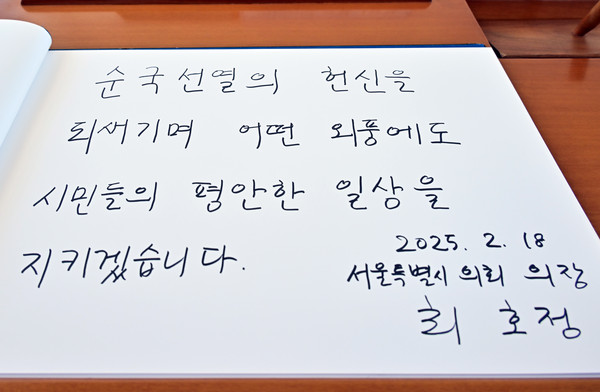 순국선열의 헌신을
되새기며 어떤 외풍에도
시민들의 평안한 일상을
지키겠습니다.
2025. 2. 18
서울특별시 의회 의장
최호정